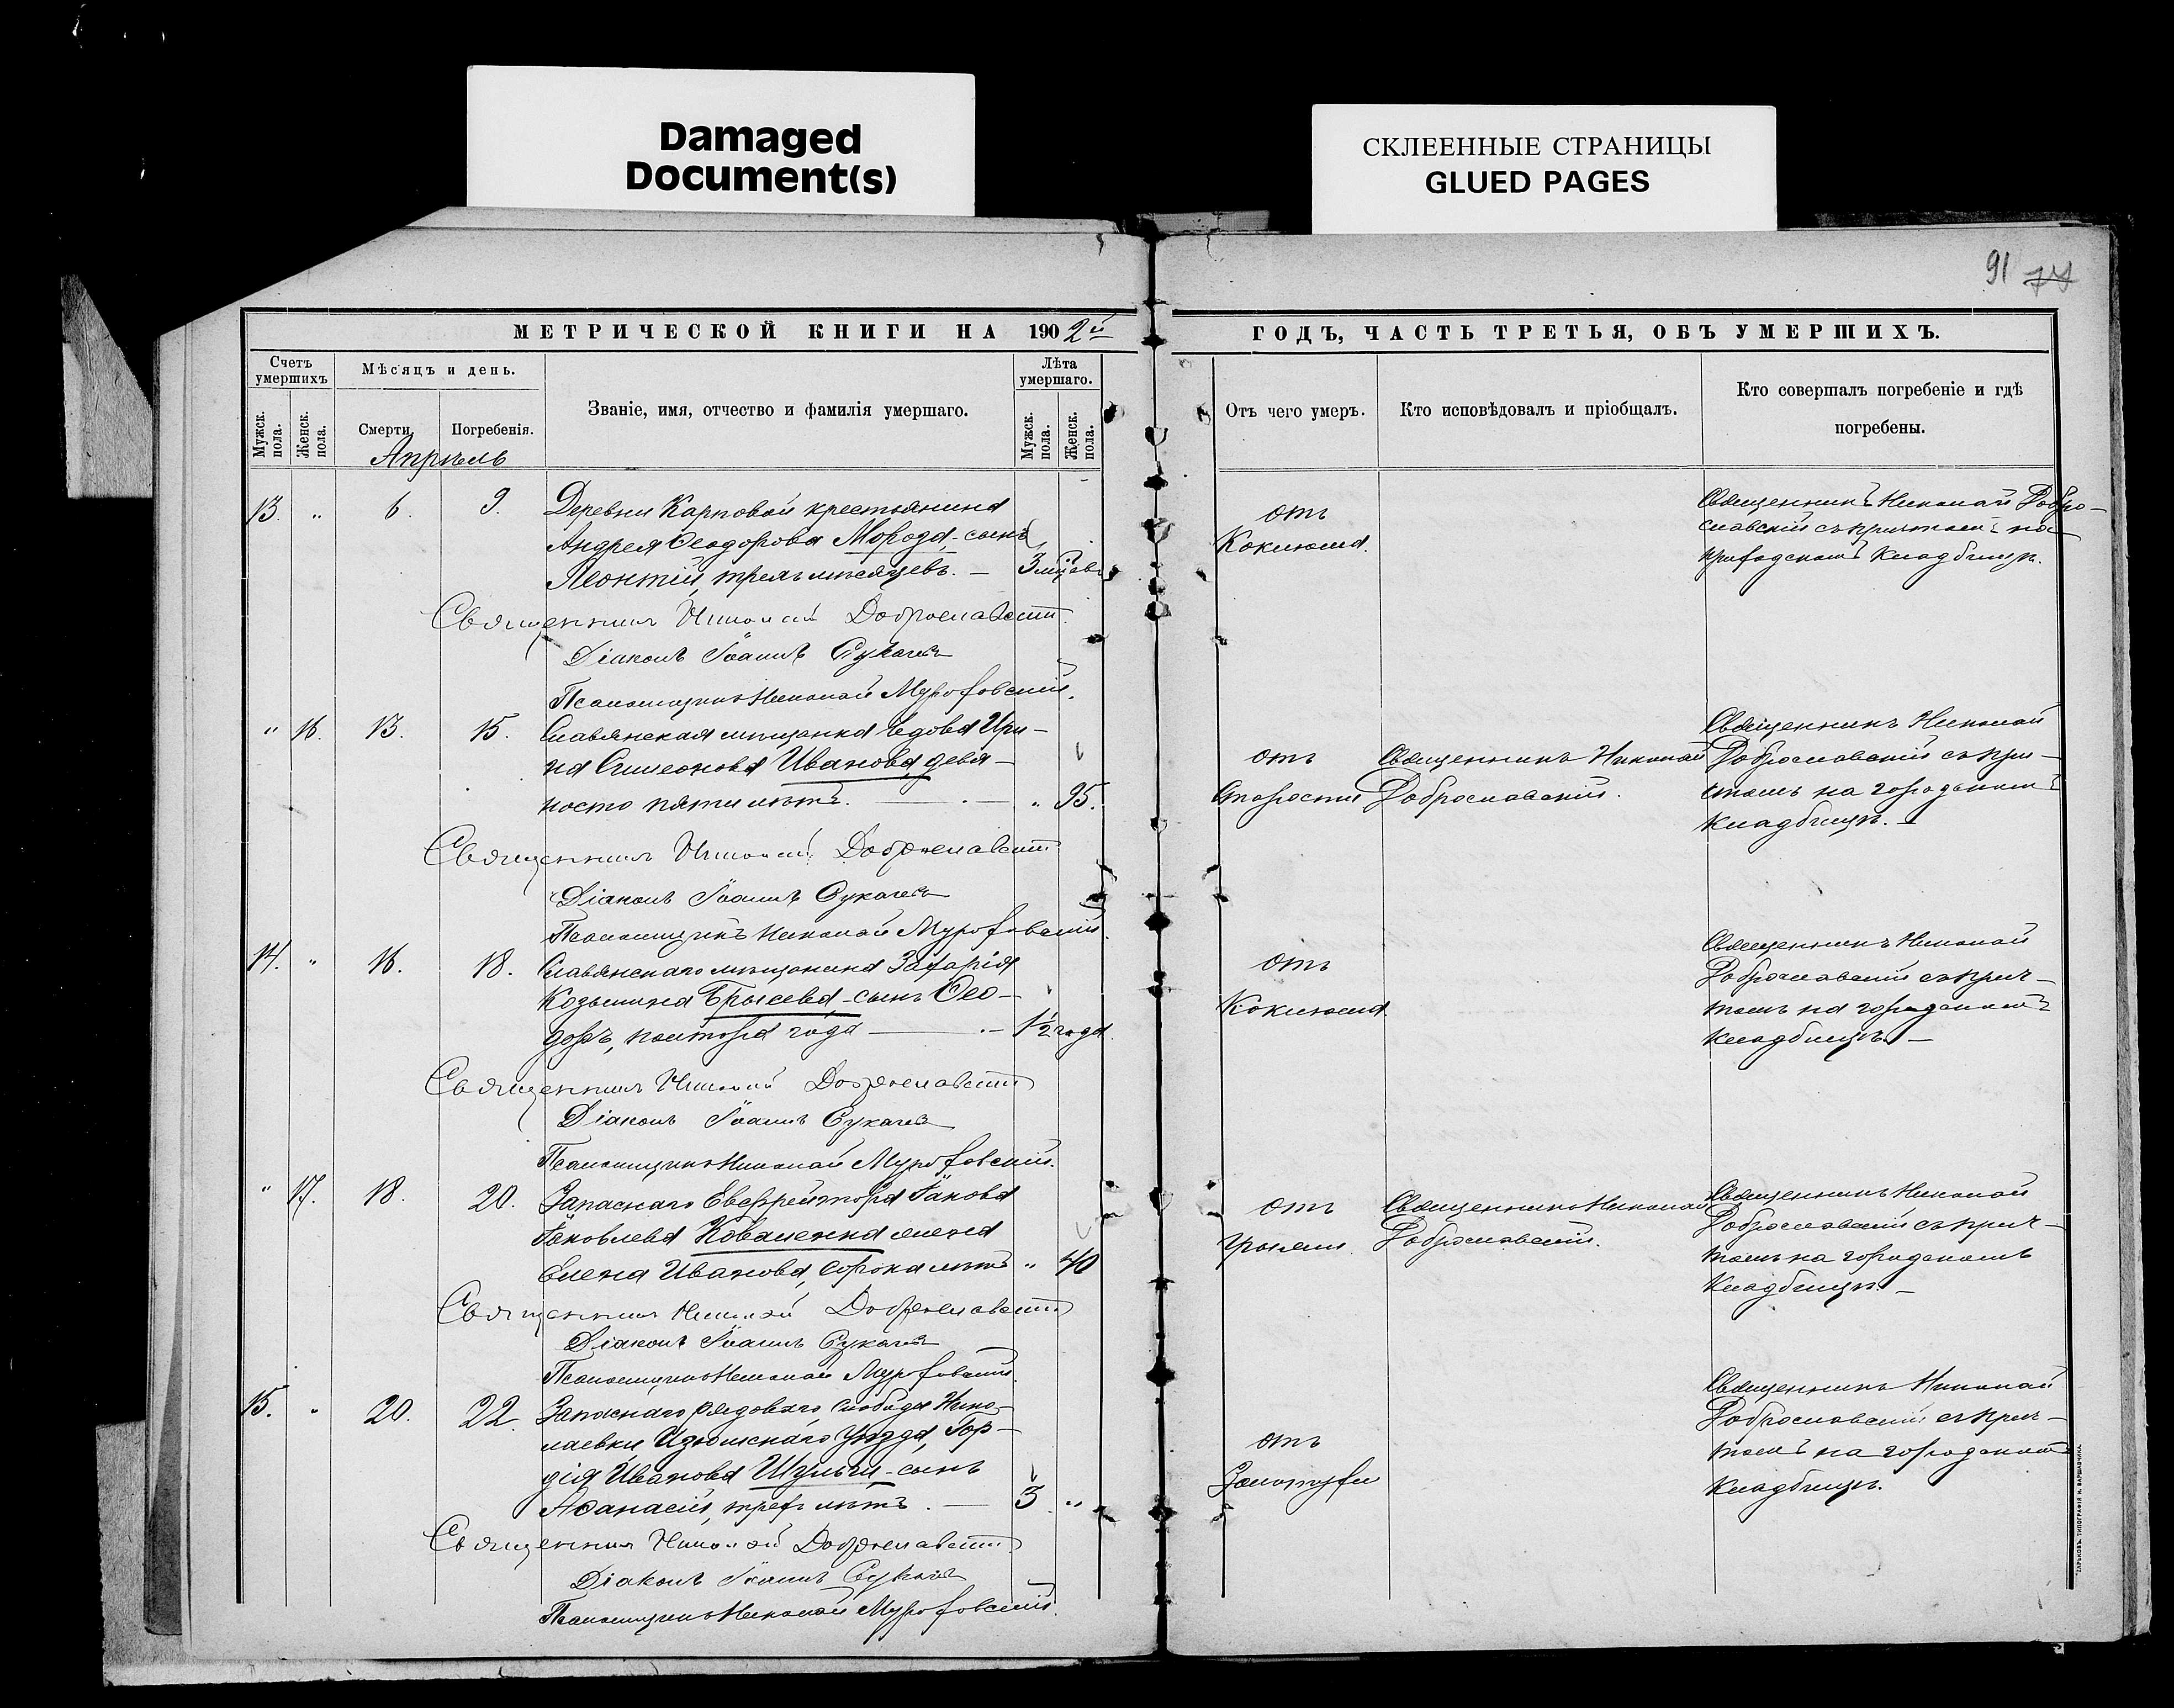 Damaged
Document(s)
СКЛЕЕННЫЕ СТРАНИЦЫ
GLUED PAGES
91 74
МЕТРИЧЕСКОЙ КНИГИ НА 1902й
ГОДЪ, ЧАСТЬ ТРЕТЬЯ, ОБЪ УМЕРШИХЪ.
Счетъ умершихъ
Мѣсяцъ и день.
Званіе, имя, отчество и фамилія умершаго.
Лѣта умершаго.
Мужск. пола.
Женск. пола.
Смерти.
Погребенія.
Мужск. пола.
Женск. пола.
Апрѣль
Отъ чего умеръ.
Кто исповѣдовалъ и пріобщалъ.
Кто совершалъ погребеніе и гдѣ
погребены.
13. " 6. 9. Деревни Карповой крестьянина
Андрея Ѳеодорова Мороза, сынъ
Леонтій, трехъ мѣсяцевъ. — 3 мѣсяц.
отъ
Коклюша.
Священникъ Николай Добро-
славскій съ причтомъ на
приходскомъ кладбищѣ.
Священникъ Николай Доброславскій
Діаконъ Іоаннъ Сукачевъ
Псаломщикъ Николай Мухофовскій.
" 16. 13. 15. Славянская мѣщанка вдова Ири-
на Симеонова Иванова, девя-
носто пяти лѣтъ. — " 95.
отъ
Старости
Священникъ Николай
Доброславскій.
Священникъ Николай
Доброславскій съ при-
чтомъ на городскомъ
кладбищѣ. —
Священникъ Николай Доброславскій
Діаконъ Іоаннъ Сукачевъ
Псаломщикъ Николай
14. " 16. 18. Славянскаго мѣщанина Захарія
Козьмина Брысева - сынъ Ѳео-
доръ, полтора года — 1½ года
отъ
Коклюша
Священникъ Николай
Доброславскій съ прич-
томъ на городскомъ
кладбищѣ. —
Священникъ Николай Доброславскій
Діаконъ Іоаннъ Сукачевъ
Псаломщикъ Николай
" 17. 18. 20. Запаснаго Ефрейтора Іакова
Іаковлева Коваленка жена
Елена Иванова, сорока лѣтъ " 40
отъ
Грыжи
Священникъ Николай
Доброславскій.
Священникъ Николай
Доброславскій съ прич-
томъ на городскомъ
кладбищѣ. —
Священникъ Николай Доброславскій
Діаконъ Іоаннъ Сукачевъ
Псаломщикъ Николай
15. " 20. 22. Запаснаго рядоваго слободы Нико-
лаевки, Изюмскаго уѣзда, Гор-
дія Иванова Шульги - сынъ
Аѳанасій, трехъ лѣтъ. — 3 "
отъ
Золотухи
Священникъ Николай
Доброславскій съ прич-
томъ на городскомъ
кладбищѣ.
Священникъ Николай Доброславскій
Діаконъ Іоаннъ Сукачевъ
Псаломщикъ Николай
ХАРЬКОВЪ. ТИПОГРАФІЯ И. ВАРШАВЧИКА.